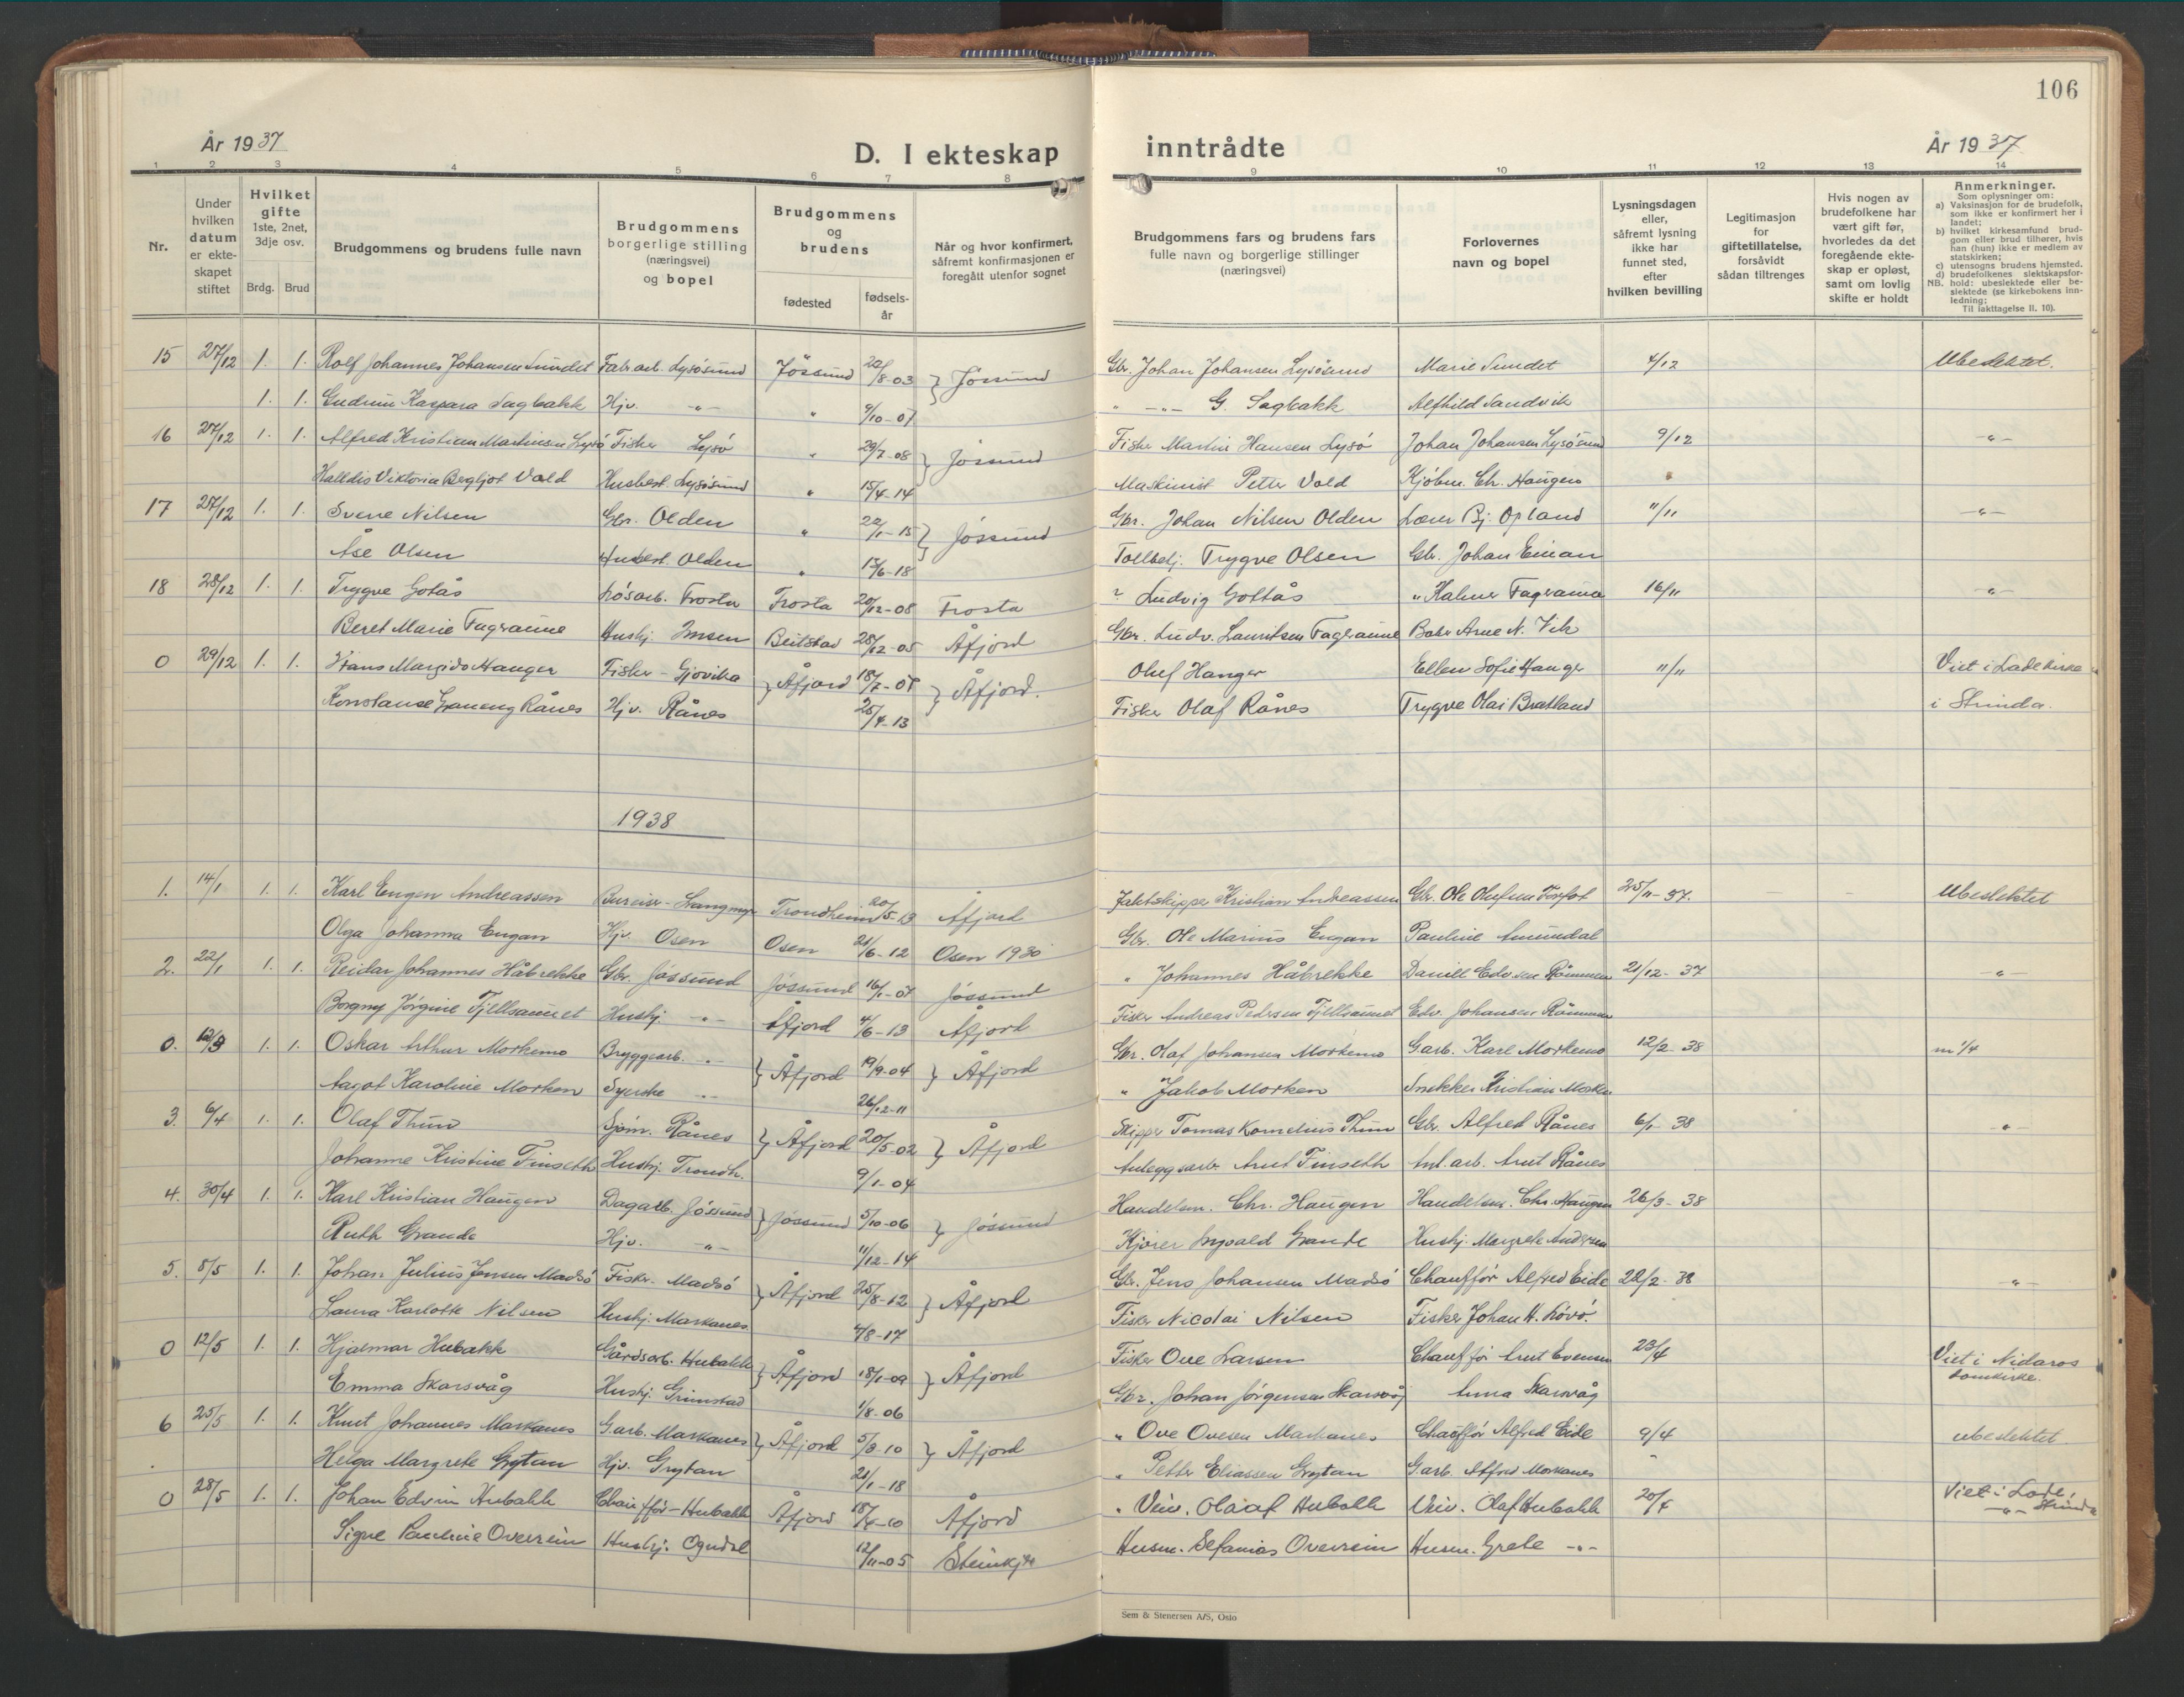 106
År 1937
D. I ekteskap inntrådte
År 1937
1 2 3 4 5 6 7 8 9 10 11 12 13 14
Nr.
Under hvilken datum er ekteskapet stiftet
Hvilket gifte 1ste, 2net, 3dje osv.
Brdg. Brud
Brudgommens og brudens fulle navn
Brudgommens borgerlige stilling (næringsvei) og bopel
Brudgommens og brudens
fødested
fødselsår
Når og hvor konfirmert, såfremt konfirmasjonen er foregått utenfor sognet
Brudgommens fars og brudens fars fulle navn og borgerlige stillinger (næringsvei)
Forlovernes navn og bopel
Lysningsdagen eller, såfremt lysning ikke har funnet sted, efter hvilken bevilling
Legitimasjon for giftetillatelse, forsåvidt sådan tiltrenges
Hvis nogen av brudefolkene har vært gift før, hvorledes da det foregående ekteskap er opløst, samt om lovlig skifte er holdt
Anmerkninger.
Som oplysninger om:
a) Vaksinasjon for de brudefolk, som ikke er konfirmert her i landet;
b) hvilket kirkesamfund brudgom eller brud tilhører, hvis han (hun) ikke er medlem av statskirken;
c) utensogns brudens hjemsted.
d) brudefolkenes slektskapsforhold: ubeslektede eller beslektede (se kirkebokens innledning;
NB.
Til iakttagelse II. 10).
15 27/12 1. 1. Rolf Johannes Johansen Sundet Fabr.arb. Lysøsund Jøssund 22/8-03 } Jøssund Gbr. Johan Johansen Lysøsund Marie Sundet 4/12 Ubeslektet.
1. 1. Gudrun Kaspara Sagbakk Hjv. -"- " 9/10-07 " -"- G. Sagbakk Alfhild Sandvik
16 27/12 1. 1. Alfred Kristian Martinsen Lysø Fisker Lysø " 29/7-08 } Jøssund Fisker Martin Hansen Lysø Johan Johansen Lysøsund 9/12 -"-
Halldis Viktoria Bergljot Vold Husbest. Lysøsund " 15/4-14 Maskinist Petter Vold Kjøbm. Chr. Haugen
17 27/12 1. 1. Sverre Nilsen Gbr. Olden " 22/1-15 } Jøssund Gbr. Johan Nilsen Olden Lærer Bj. Opland 11/11 -"-
Åse Olsen Husbest. Olden " 17/6-18 Tollbetj. Trygve Olsen Gbr. Johan Einan
18 28/12 1. 1. Trygve Gotås Løsarb. Frosta Frosta 20/12-08 Frosta " Ludvig Gottås " Halmer Fagranna 16/11 -"-
Beret Marie Fagraune Hushj. Imsen Beitstad 28/12-05 Åfjord Gbr. Ludv. Lauritsen Fagraune Baker Arne N. Vik
0 29/12 1. 1. Hans Margido Hanger Fisker - Gjøvika } Åfjord 18/7-08 } Åfjord. Oluf Hanger Ellen Sofie Hanger 11/11 Viet i Lade kirke
Konstanse Rånes Hjv. Rånes 25/4-13 Fisker Olaf Rånes Trygve Olai Bratland i Strinda.
1938
1. 14/1 1. 1. Karl Eugen Andreassen Bureiser - Langmyr Trondheim 20/5-13 Åfjord Jaktskipper Kristian Andreassen Gbr. Ole Olufsen Forfot 25/11-37. - - Ubeslektet
Olga Johanna Engan Hjv. Osen Osen 21/6-12 Osen 1930 Gbr. Ole Marius Engan Pauline Amundal
2. 22/1 1. 1. Reidar Johannes Håbrekke Gbr. Jøssund Jøssund 16/1-07 Jøssund " Johannes Håbrekke Daniell Edv.sen Rømmen 21/12-37 -"-
Borgny Jørgine Fjellsaunet Hushj. -"- Åfjord 4/6-13 Åfjord Fisker Andreas Pedersen Fjellsaunet Edv. Johansen Rømmen
0. 12/3 1. 1. Oskar Arthur Morkemo Bryggearb. -"- } Åfjord 19/9-04 } Åfjord Gbr. Olaf Johansen Morkemo G.arb. Karl Morkemo 12/2-38 m 1/4
Aagot Karoline Morken Syerske -"- 26/12-11 " Jakob Morken Snekker Kristian Morken
3. 6/4 1. 1. Olaf Thun Sjøm. Rånes } Åfjord 20/5-02 } Åfjord Skipper Tomas Kornelius Thun Gbr. Alfred Rånes 6/1-38 -"-
Johanne Kristine Finseth Hushj. Trondh. 9/1-04 Anleggsarb. Arnt Finseth Anl.arb. Arnt Rånes
4. 30/4 1. 1. Karl Kristian Haugen Dagarb. Jøssund } Jøssund 5/10-06 } Jøssund Handelsm. Chr. Haugen Handelsm. Chr. Haugen 26/3-38
Ruth Grande Hjv. -"- 11/12-14 Kjører Ingvald Grande Hushj. Margrete Andersen
5. 8/5 1. 1. Johan Julius Jensen Madsø Fisker. Madsø } Åfjord 25/8-12 } Åfjord Gbr. Jens Johansen Madsø Chauffør Alfred Eide 22/2-38 -"-
Laura Karlotte Nilsen Hushj. Markanes 4/8-17 Fisker Nicolai Nilsen Fisker Johan H. Løvø.
0 12/5 1. 1. Hjalmar Hubakk Gårdsarb. Hubakk } Åfjord 18/1-09 } Åfjord Fisker Ove Larsen Chauffør Arnt Evensen 23/4 Viet i Nidaros Domkirke.
Emma Skarsvåg Hushj. Grimstad 1/8-06 Gbr. Johan Jørgensen Skarsvåg Anna Skarsvåg
6 25/5 1. 1. Knut Johannes Markanes G.arb. Markanes } Åfjord 5/3-10 } Åfjord " Ove Ovesen Markanes Chauffør Alfred Eide 9/4 ubeslektet
Helga Margrete Grytan Hjv. Grytan 21/1-18 " Petter Eliassen Grytan G.arb. Alfred Markanes
0 28/5 1. 1. Johan Edvin Hubakk Chauffør - Hubakk Åfjord 18/4-10 Åfjord " Veiv. Olaf Hubakk Veiv. Olaf Hubakk 20/4 Viet i Lade, -"- Strinda
Signe Pauline Overrein Hushj. Ogndal 12/11-05 Steinkjer Husm. Sefanias Overrein Husm. Grete -"-
Sem & Stenersen A/S, Oslo